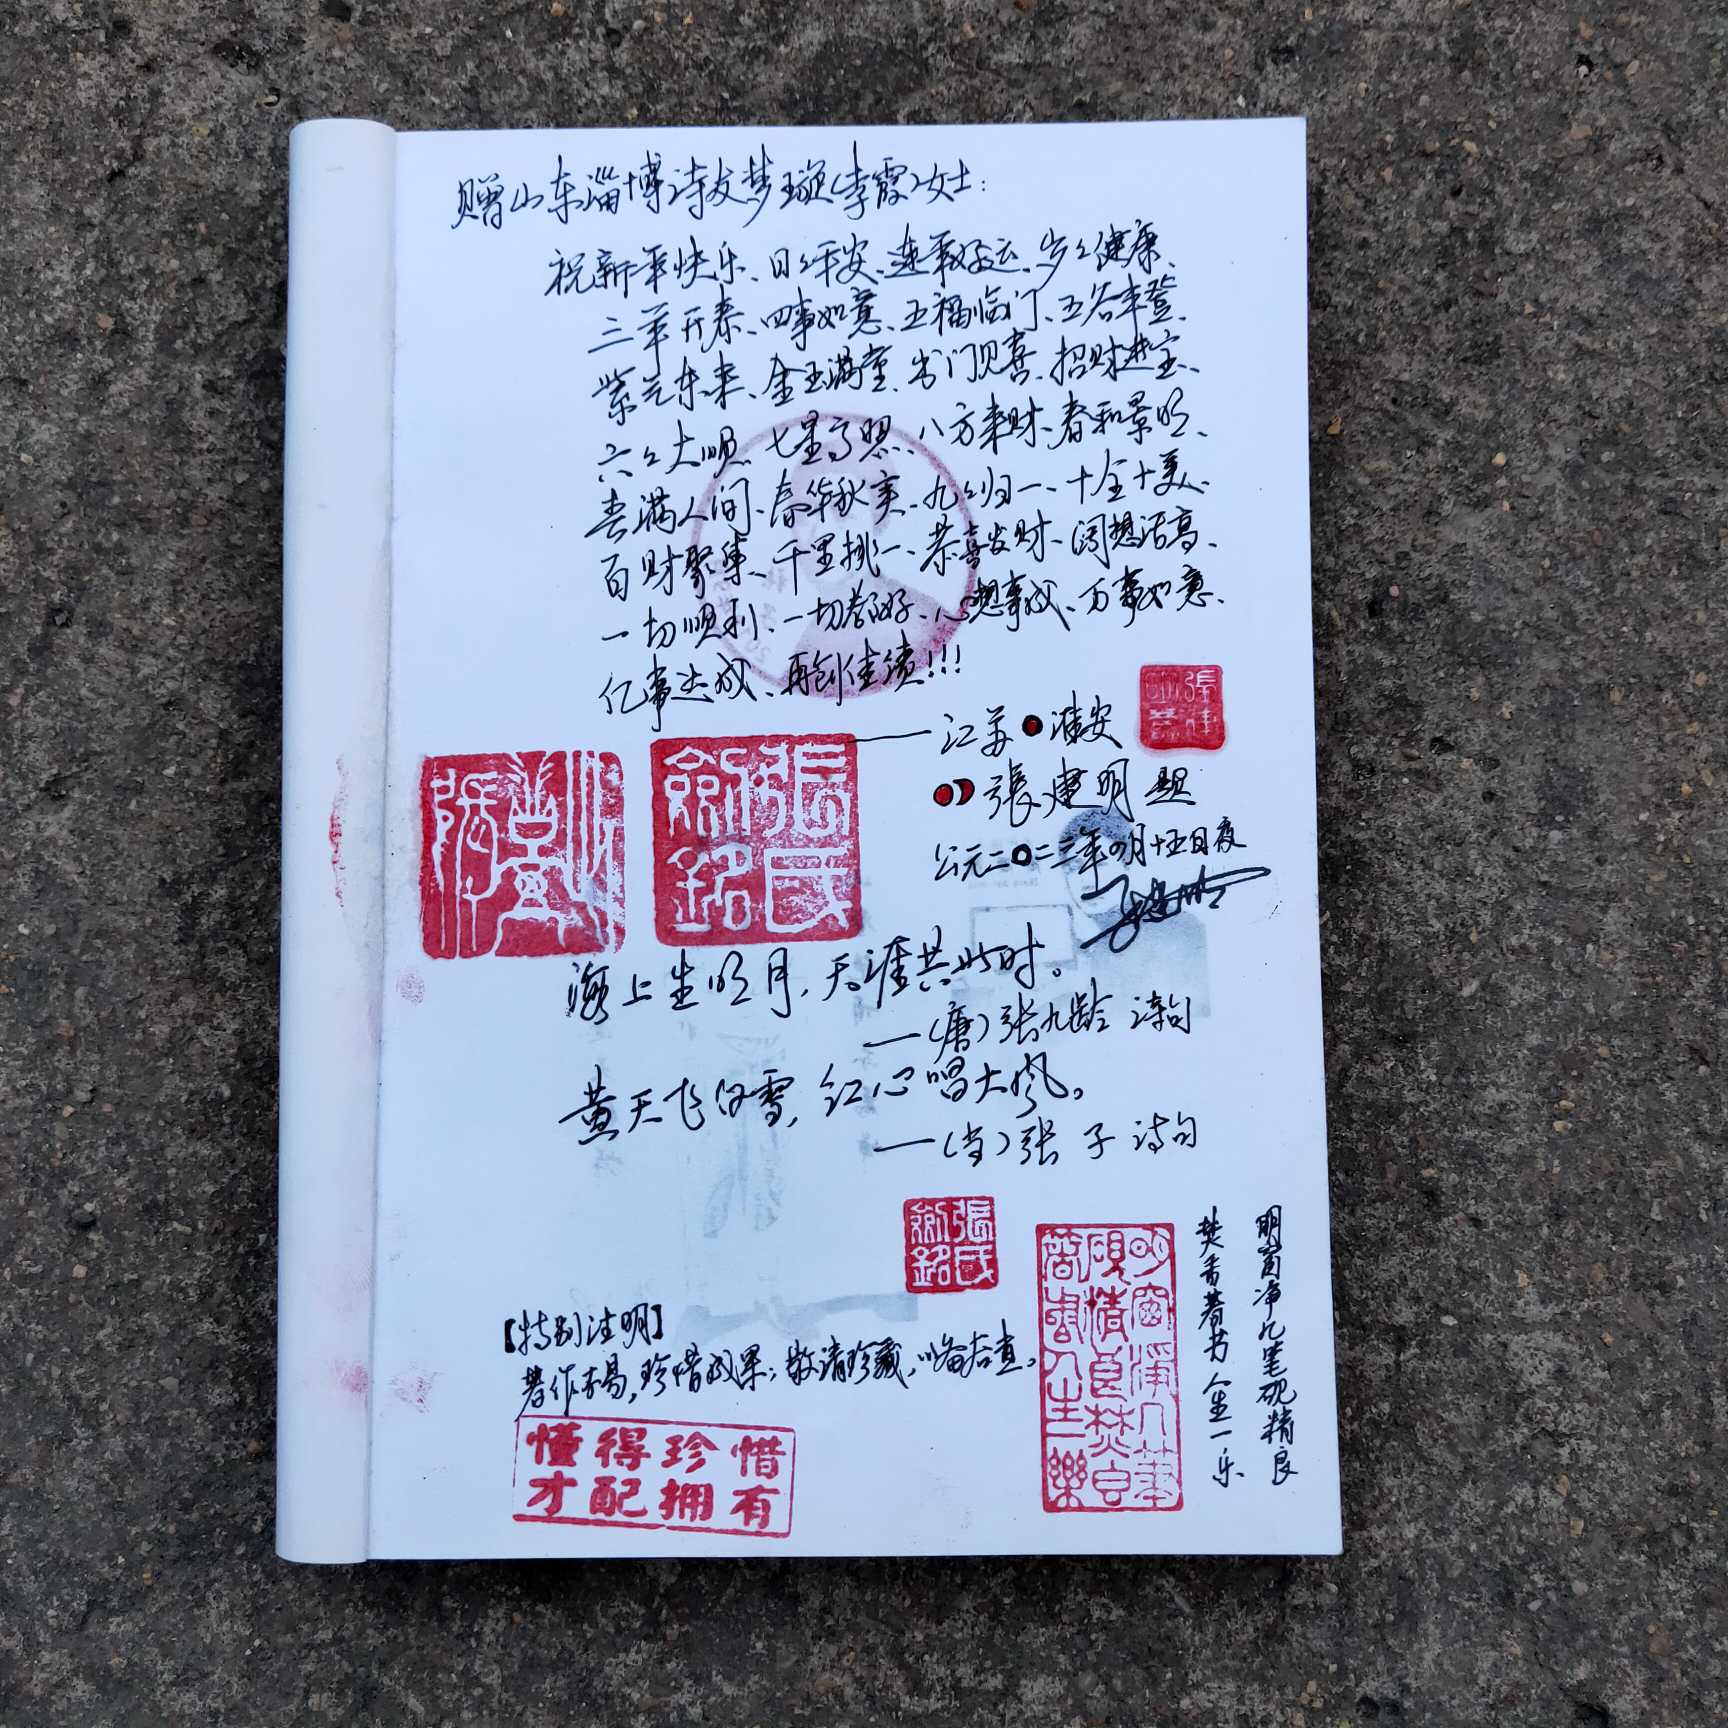 赠山东淄博诗友梦璇(李霞)女士:
祝新年快乐、日々平安、连年好运、岁々健康、
三羊开泰、四事如意、五福临门、五谷丰登、
紫气东来、金玉满堂、出门见喜、招财进宝、
六々大顺、七星高照、八方来财、春和景明、
喜满人间、春华秋实、九々归一、十全十美、
百财聚集、千里挑一、恭喜发财、阔想活高、
一切顺利、一切都好、心想事成、万事如意、
亿事达成、再创佳绩!!!
江苏●淮安
張建明 题
公元二〇二三年四月十五日夜
張氏劍銘
海上生明月,天涯共此时。
—(唐)张九龄 诗句
黄天飞白雪,红心唱大风。
—(当)张子 诗句
張氏劍銘
【特别注明】
著作不易,珍惜成果;敬请珍藏,以备后查。
懂得珍惜
才配拥有
明窗净几笔砚精良
焚香著书人生一乐
明窗淨几筆
硯精良焚香
著書人生一樂